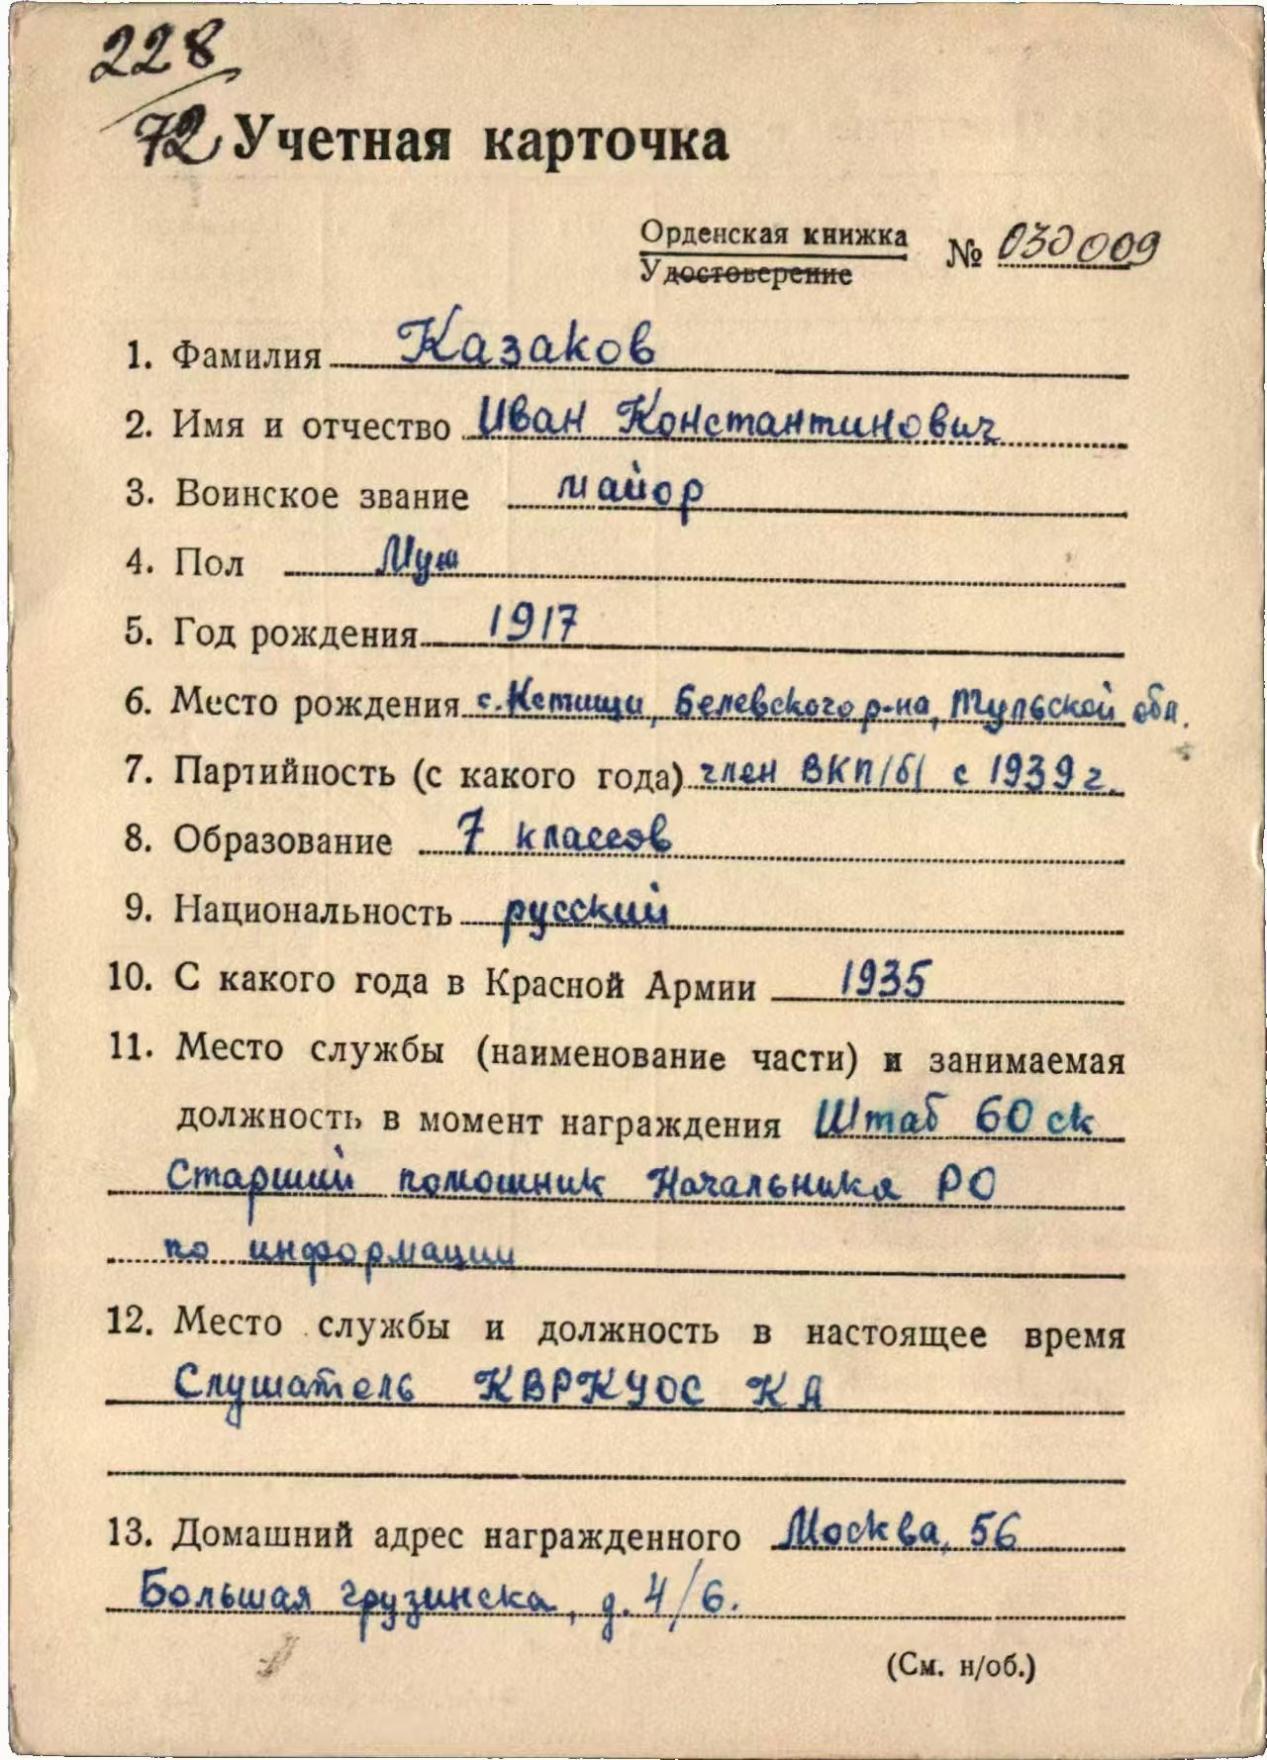 228
72 Учетная карточка
Орденская книжка № 030009
Удостоверение
1. Фамилия Казаков
2. Имя и отчество Иван Константинович
3. Воинское звание майор
4. Пол Муж
5. Год рождения 1917
6. Место рождения с. Кетищи, Белевского р-на, Тульской обл.
7. Партийность (с какого года) член ВКП/б/ с 1939 г.
8. Образование 7 классов
9. Национальность русский
10. С какого года в Красной Армии 1935
11. Место службы (наименование части) и занимаемая
должность в момент награждения Штаб 60 ск
Старший помошник Начальника РО
по информации
12. Место службы и должность в настоящее время
Слушатель КВРКУОС КА
13. Домашний адрес награжденного Москва, 56
Большая грузинска, д. 4/6.
(См. н/об.)